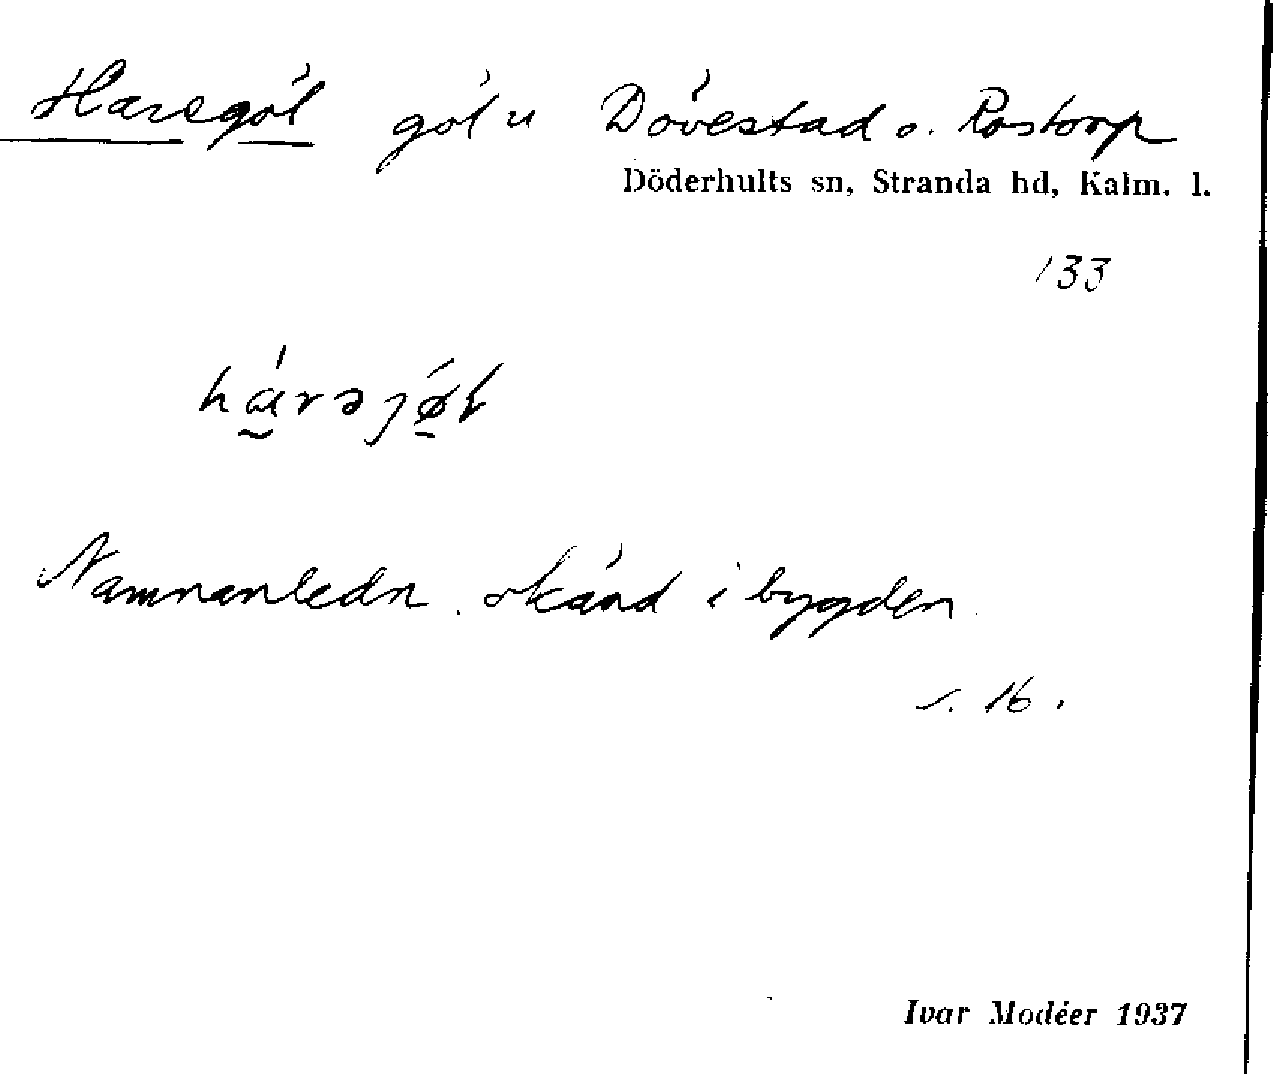 Haregöl göl u Dövestad o. Rostorp
Döderhults sn, Stranda hd, Kalm. l.
133
Namnanledn. okänd i bygden.
s. 16.
Ivar Modéer 1937